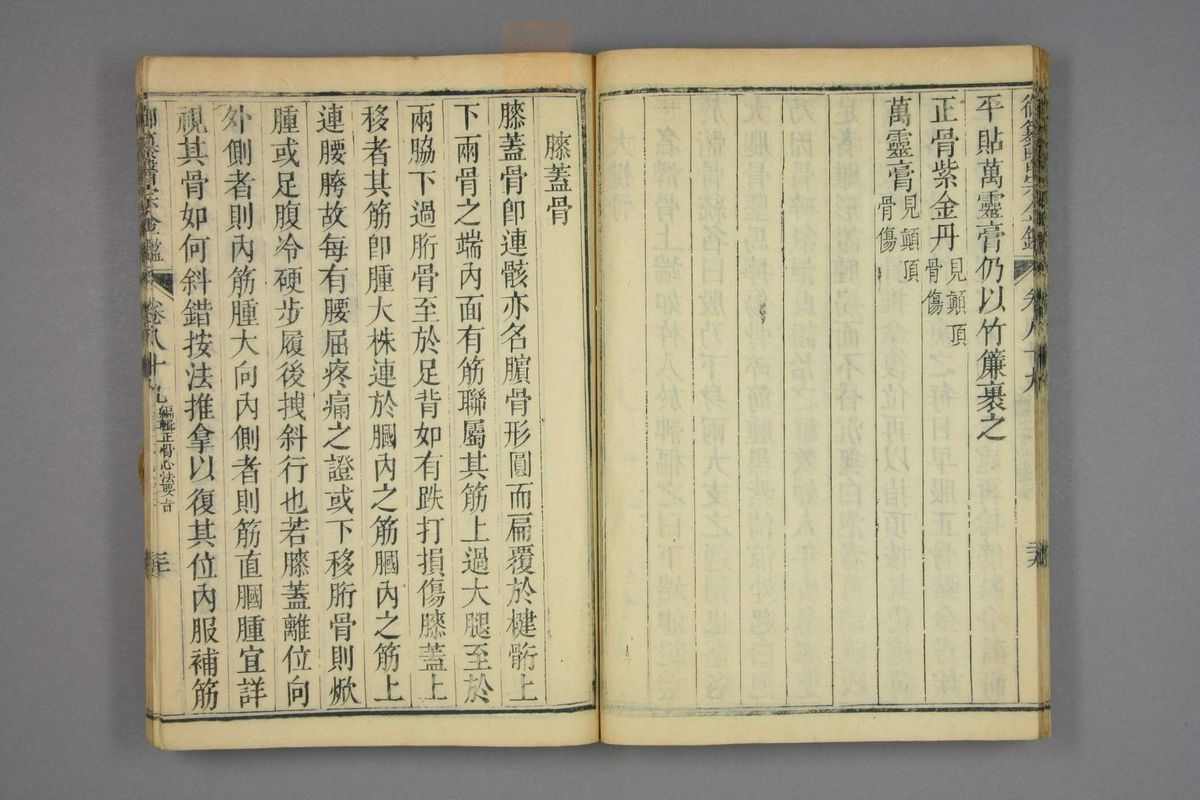 御纂醫宗金鑑 卷八十九
平貼萬靈膏仍以竹簾裹之
正骨紫金丹見顛頂骨傷
萬靈膏見顛頂骨傷
膝蓋骨
膝蓋骨卽連骸亦名臏骨形圓而扁覆於楗䯒上
下兩骨之端內面有筋聯屬其筋上過大腿至於
兩脇下過䯒骨至於足背如有跌打損傷膝蓋上
移者其筋卽腫大株連於膕內之筋膕內之筋上
連腰胯故每有腰屈疼痛之證或下移䯒骨則焮
腫或足腹冷硬步履後拽斜行也若膝蓋離位向
外側者則內筋腫大向內側者則筋直膕腫宜詳
視其骨如何斜錯按法推拿以復其位內服補筋
御纂醫宗金鑑 卷八十九 編輯正骨心法要旨